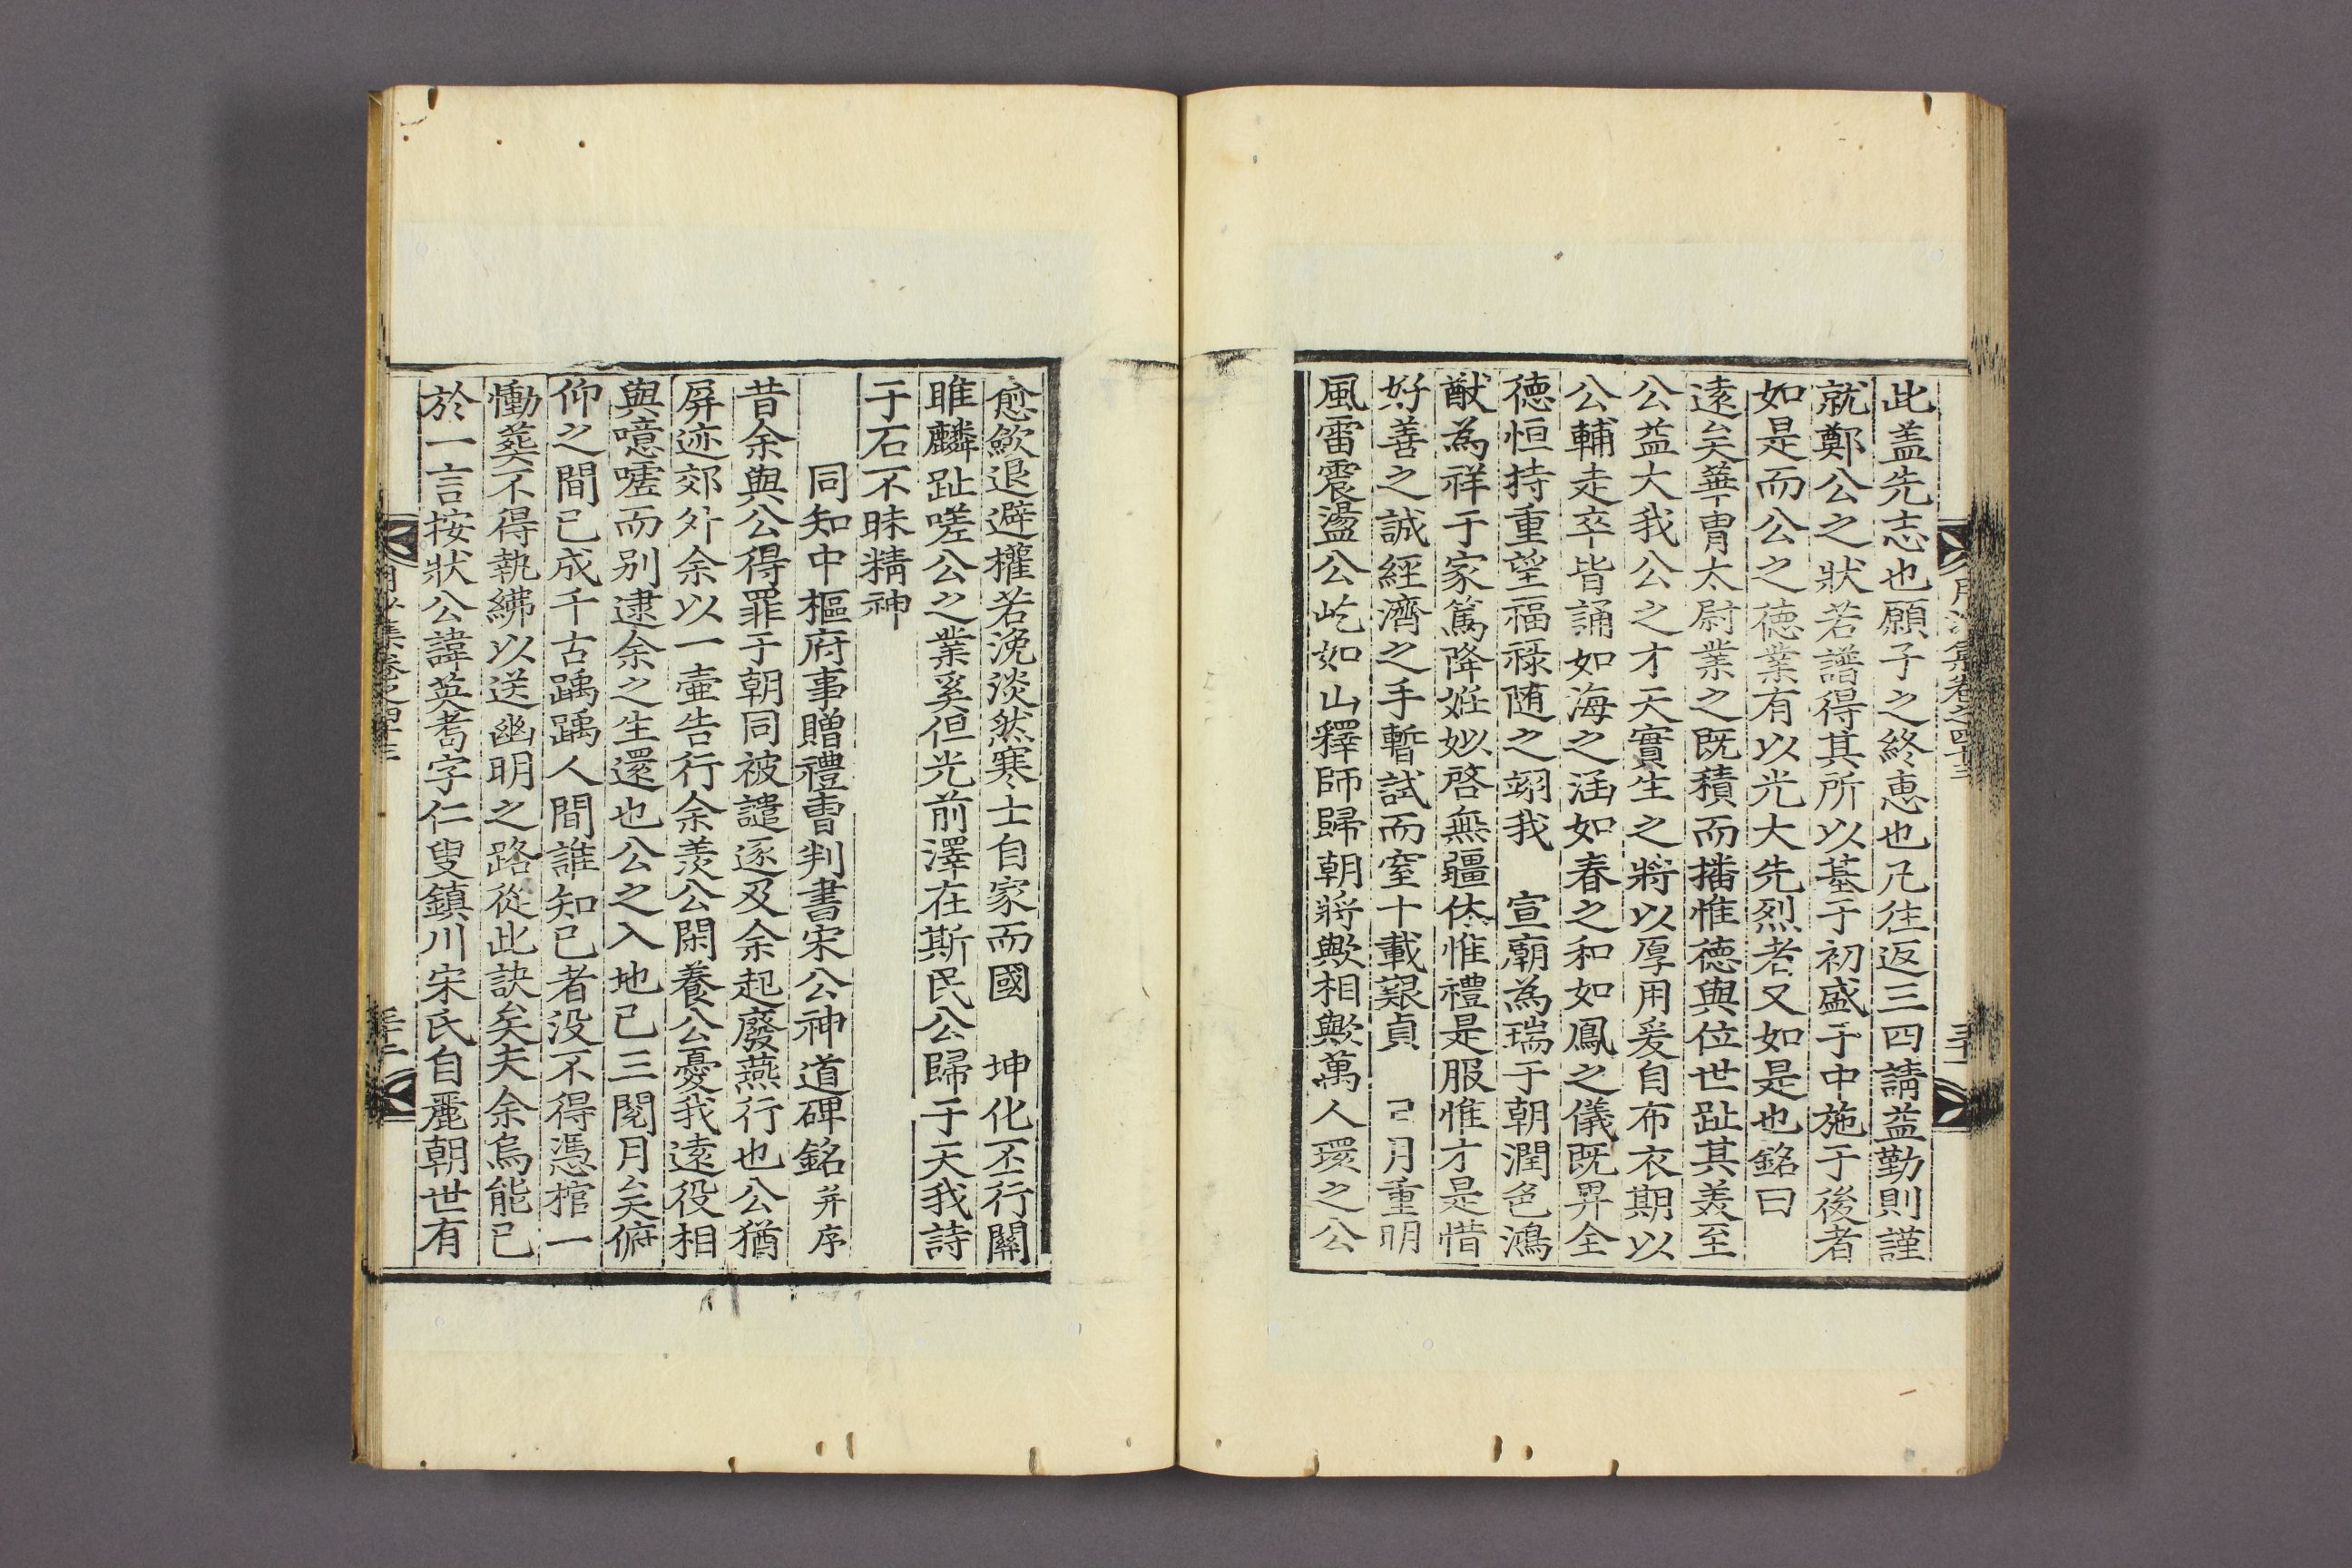 此盖先志也願子之終惠也凡往返三四請益勤則謹
就鄭公之狀若譜得其所以基于初盛于中施于後者
如是而公之德業有以光大先烈者又如是也銘曰
遠矣華胄太尉業之既積而播惟德與位世趾其美至
公益大我公之才天實生之將以厚用爰自布衣期以
公輔走卒皆誦如海之涵如春之和如鳳之儀既畀全
德恒持重望福祿随之翊我 宣廟為瑞于朝潤色鴻
猷為祥于家篤降姙姒啓無疆休惟禮是服惟才是惜
好善之誠經濟之手暫試而窒十載艱貞 月重明
風雷震盪公屹如山釋師歸朝將歟相歟萬人環之公
月沙集卷之四十三 三十一
愈歛退避權若浼淡然寒士自家而國 坤化丕行關
雎麟趾嗟公之業奚但光前澤在斯民公歸于天我詩
于石不昧精神
同知中樞府事贈禮曹判書宋公神道碑銘 并序
昔余與公得罪于朝同被譴逐及余起廢燕行也公猶
屏迹郊外余以一壷告行余羡公閑養公憂我遠役相
與噫嘘而别逮余之生還也公之入地已三閱月矣俯
仰之間已成千古踽踽人間誰知已者没不得憑棺一
慟葬不得執紼以送幽明之路從此訣矣夫余烏能已
於一言按狀公諱英耉字仁叟鎮川宋氏自麗朝世有
月沙集卷之四十三 三十二